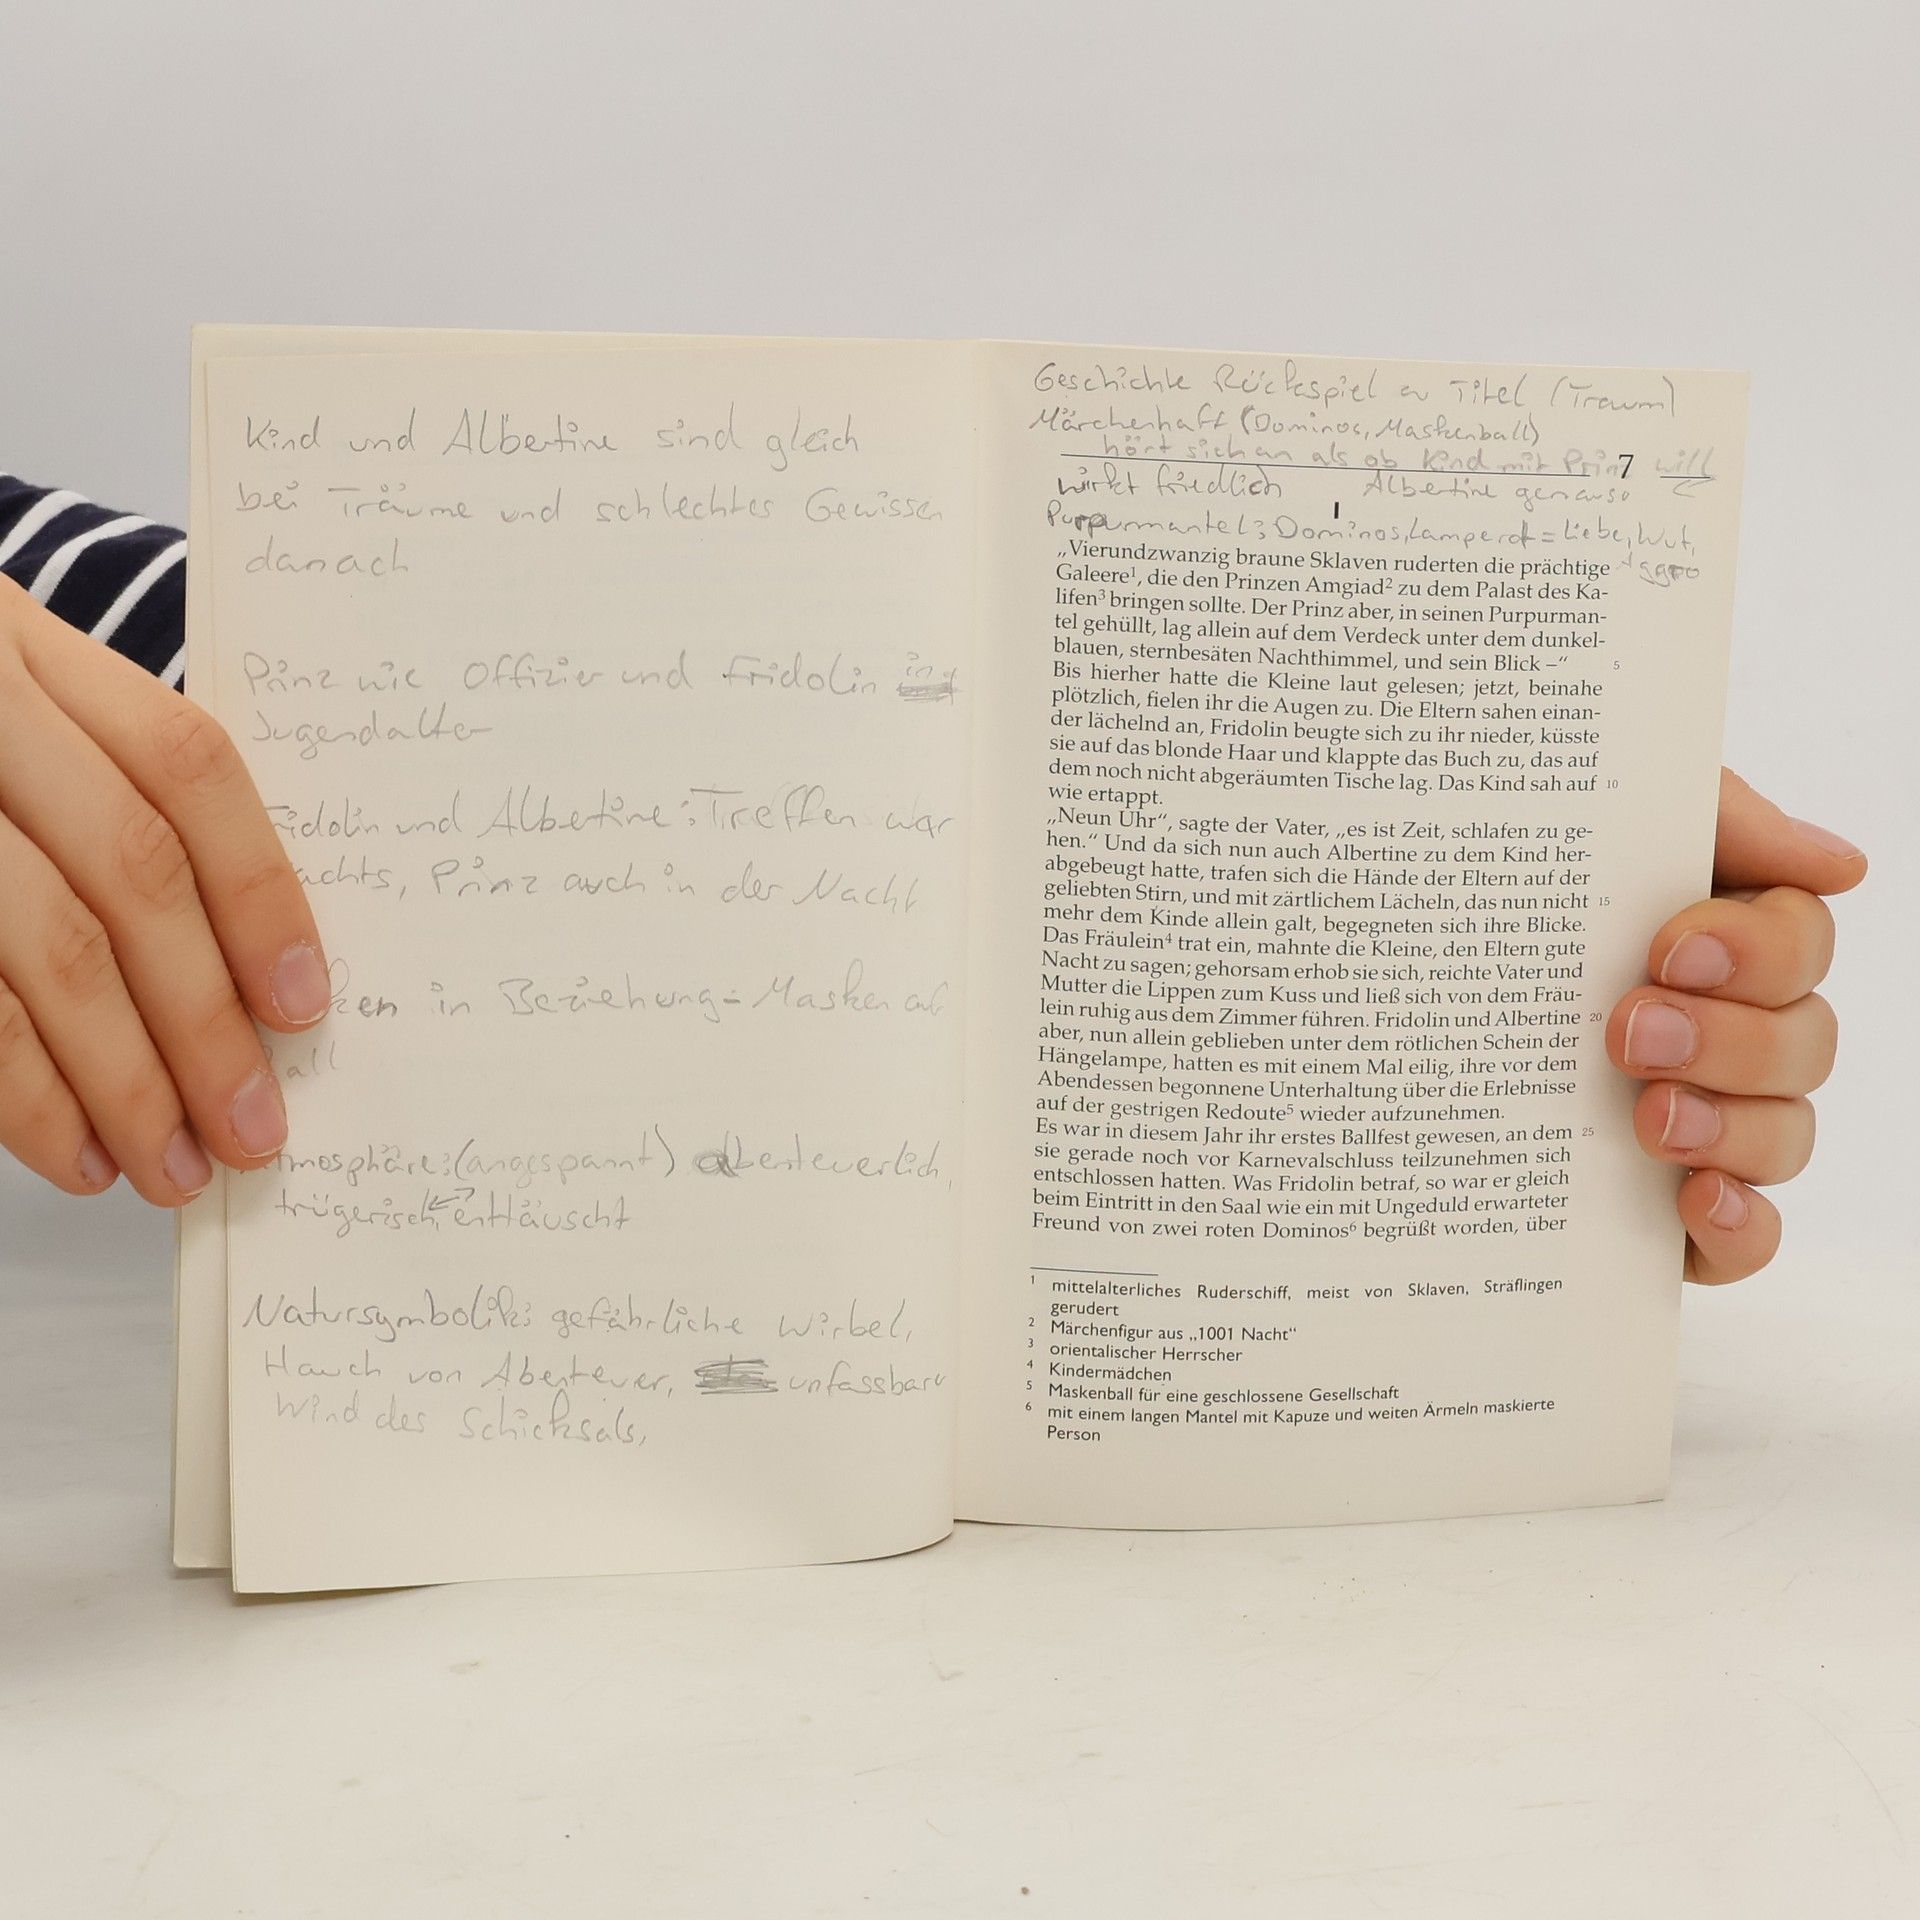 Kind und Albertine sind gleich
bei Träume und schlechtes Gewissen
danach
Prinz wie Offizier und Fridolin im
Jugendalter
ridolin und Albertine: Treffen war
achts, Prinz auch in der Nacht
ken in Beziehung = Masken auf
all
tmosphäre: (angespannt) abenteuerlich,
trügerisch, enttäuscht
Natursymbolik: gefährliche Wirbel,
Hauch von Abenteuer, unfassbare
Wind des Schicksals,
Geschichte Rückspiel zu Titel (Traum)
Märchenhaft (Dominos, Maskenball)
hört sich an als ob Kind mit Prinz will
7
wirkt friedlich Albertine genauso
I
Purpurmantel; Dominos, Lamperot = Liebe, Wut,
Aggro
„Vierundzwanzig braune Sklaven ruderten die prächtige
Galeere¹, die den Prinzen Amgiad² zu dem Palast des Ka-
lifen³ bringen sollte. Der Prinz aber, in seinen Purpurman-
tel gehüllt, lag allein auf dem Verdeck unter dem dunkel-
blauen, sternbesäten Nachthimmel, und sein Blick –“ 5
Bis hierher hatte die Kleine laut gelesen; jetzt, beinahe
plötzlich, fielen ihr die Augen zu. Die Eltern sahen einan-
der lächelnd an, Fridolin beugte sich zu ihr nieder, küsste
sie auf das blonde Haar und klappte das Buch zu, das auf
dem noch nicht abgeräumten Tische lag. Das Kind sah auf 10
wie ertappt.
„Neun Uhr“, sagte der Vater, „es ist Zeit, schlafen zu ge-
hen.“ Und da sich nun auch Albertine zu dem Kind her-
abgebeugt hatte, trafen sich die Hände der Eltern auf der
geliebten Stirn, und mit zärtlichem Lächeln, das nun nicht 15
mehr dem Kinde allein galt, begegneten sich ihre Blicke.
Das Fräulein⁴ trat ein, mahnte die Kleine, den Eltern gute
Nacht zu sagen; gehorsam erhob sie sich, reichte Vater und
Mutter die Lippen zum Kuss und ließ sich von dem Fräu-
lein ruhig aus dem Zimmer führen. Fridolin und Albertine 20
aber, nun allein geblieben unter dem rötlichen Schein der
Hängelampe, hatten es mit einem Mal eilig, ihre vor dem
Abendessen begonnene Unterhaltung über die Erlebnisse
auf der gestrigen Redoute⁵ wieder aufzunehmen.
Es war in diesem Jahr ihr erstes Ballfest gewesen, an dem 25
sie gerade noch vor Karnevalschluss teilzunehmen sich
entschlossen hatten. Was Fridolin betraf, so war er gleich
beim Eintritt in den Saal wie ein mit Ungeduld erwarteter
Freund von zwei roten Dominos⁶ begrüßt worden, über
1 mittelalterliches Ruderschiff, meist von Sklaven, Sträflingen
gerudert
2 Märchenfigur aus „1001 Nacht“
3 orientalischer Herrscher
4 Kindermädchen
5 Maskenball für eine geschlossene Gesellschaft
6 mit einem langen Mantel mit Kapuze und weiten Ärmeln maskierte
Person